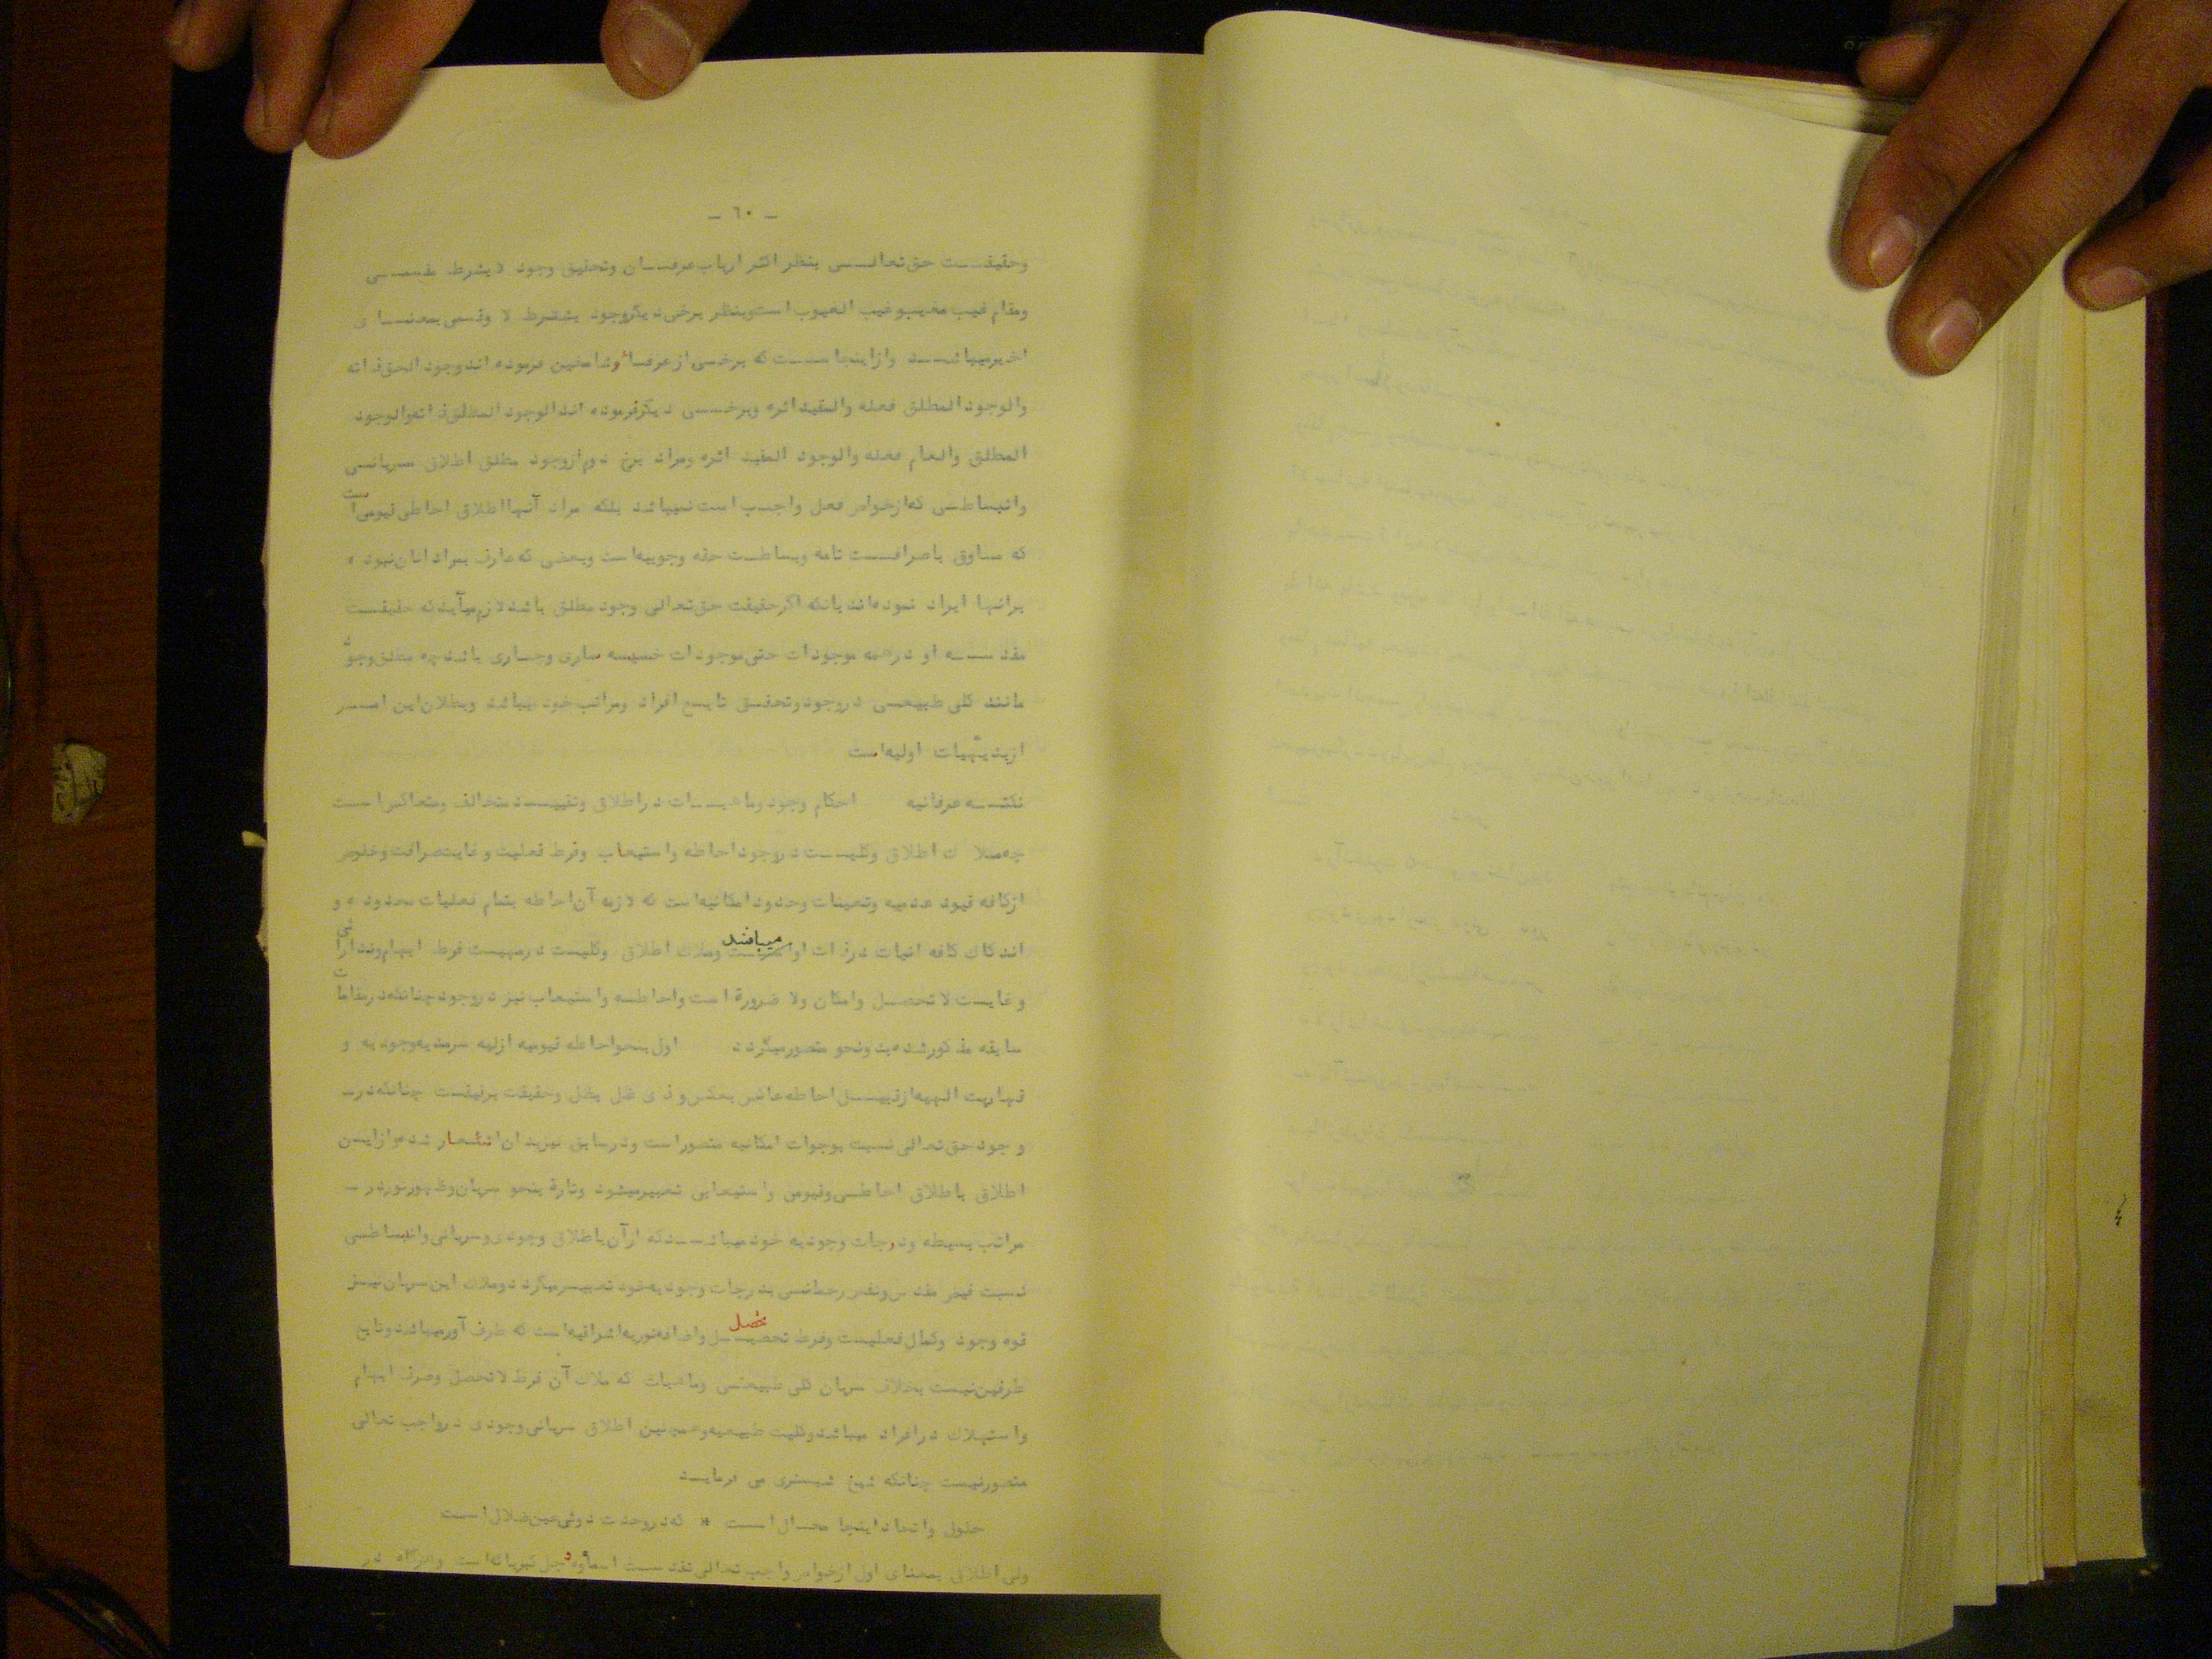 - ٦٠ -
وحقیقت حق تعالی بنظر اکثر ارباب عرفان وتحقیق وجود لابشرط مقسمی
ومقام غیب مغیب وغیب الغیوب است وبنظر برخی دیگر وجود بشرط لا وقسمی بمعنای
اخیر میباشد وازاینجاست که برخی ازعرفاء وشامخین فرموده اند وجود الحق ذاته
والوجود المطلق فعله والمقید اثره وبرخی دیگر فرموده اند الوجود المطلق ذاته والوجود
المطلق والعام فعله والوجود المقید اثره ومراد برخ دوم ازوجود مطلق اطلاق سریانی
وانبساطی که ازخواص فعل واجب است نمیباشد بلکه مراد آنها اطلاق احاطی قیومی است
که مساوق باصرافت تامه وبساطت حقه وجوبیه است وبعضی که عارف بمراد انان نبوده
برانها ایراد نموده اند بانکه اگر حقیقت حق تعالی وجود مطلق باشد لازم میآید که حقیقت
مقدسه او درهمه موجودات حتی موجودات خسیسه ساری وجاری باشد چه مطلق وجود
مانند کلی طبیعی دروجود وتحقق تابع افراد ومراتب خود میباشد وبطلان این امر
ازبدیهیات اولیه است
نکته عرفانیه احکام وجود وماهیات دراطلاق وتقیید متخالف ومتعاکس است
چه ملاک اطلاق وکلیت دروجود احاطه واستیعاب وفرط فعلیت وغایت صرافت وخلوص
ازکافه قیود عدمیه وتعینات وحدود امکانیه است که لازمه آن احاطه بتمام فعلیات محدوده و
اندکاک کافه انیات درذات او میباشد وملاک اطلاق وکلیت درمهیت فرط ابهام وندارائی
وغایت لاتحصل وامکان ولاضرورة است واحاطه واستیعاب نیز دروجود چنانکه درمقامات
سابقه مذکور شده بدونحو متصور میگردد اول بنحو احاطه قیومیه ازلیه سرمدیه وجودیه و
قهاریت الهیه ازقبیل احاطه عاکس بعکس وذی ظل بظل وحقیقت برقیقت چنانکه در-
وجود حق تعالی نسبت بوجوات امکانیه متصور است ودرسابق نیز بدان اشعار شده وازاین
اطلاق باطلاق احاطی وقیومی واستیعابی تعبیر میشود وتارة بنحو سریان وظهور نور در -
مراتب بسیطه ودرجات وجودیه خود میباشد که ازآن باطلاق وجودی وسریانی وانبساطی
نسبت فیض مقدس ونفس رحمانی بدرجات وجودیه خود تعبیر میگردد وملاک این سریان نیز
قوه وجود وکمال فعلیت وفرط تحصل واضافه نوریه اشراقیه است که طرف آور میباشد وتابع
طرفین نیست بخلاف سریان کلی طبیعی وماهیات که ملاک آن فرط لاتحصل وصرف ابهام
واستهلاک درافراد میباشد وکلیت طبیعیه وهمچنین اطلاق سریانی وجودی درواجب تعالی
متصور نیست چنانکه شیخ شبستری می فرماید
حلول واتحاد اینجا محال است * که دروحدت دوئی عین ضلال است
ولی اطلاق بمعنای اول ازخواص واجب تعالی تقدست اسماؤه وجل کبریائه است وهرگاه در